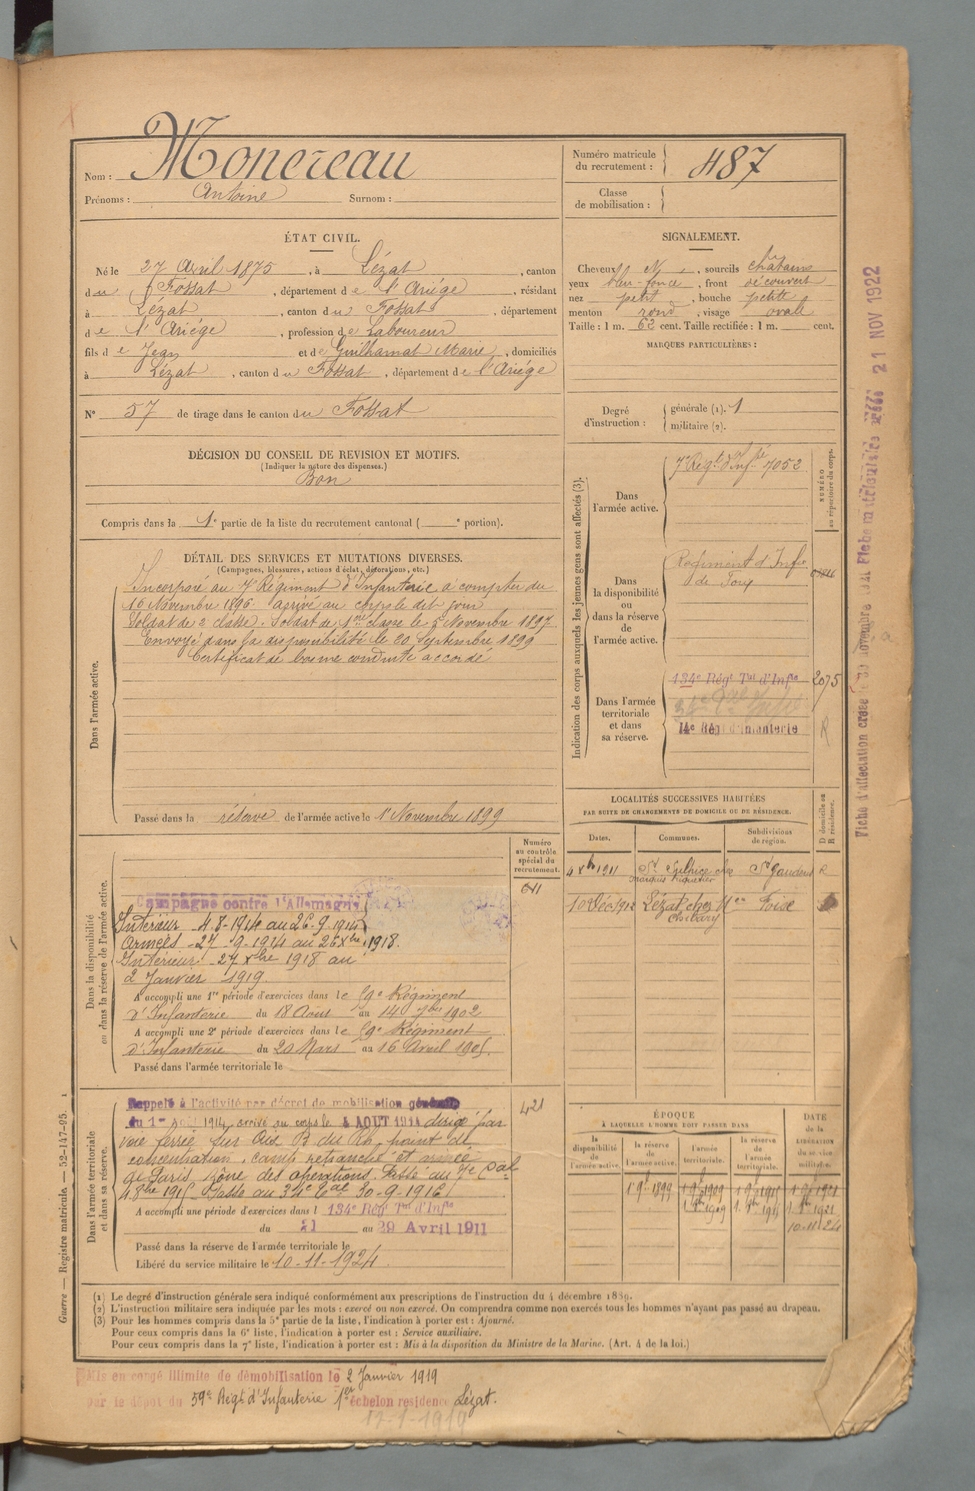 Nom : Monereau
Prénoms : Antoine Surnom :
Numéro matricule du recrutement : 487
Classe de mobilisation :
ÉTAT CIVIL.
Né le 27 Avril 1875, à Lézat, canton
du Fossat, département de l'Ariége, résidant
à Lézat, canton du Fossat, département
de l'Ariége, profession de Laboureur
fils de Jean et de Guilhamat Marie, domiciliés
à Lézat, canton du Fossat, département de l'Ariége
N° 57 de tirage dans le canton du Fossat
DÉCISION DU CONSEIL DE REVISION ET MOTIFS.
(Indiquer la nature des dispenses.)
Bon
Compris dans la 1e partie de la liste du recrutement cantonal ( e portion).
SIGNALEMENT.
Cheveux N, sourcils châtains
yeux bleu-foncé, front découvert
nez petit, bouche petite
menton rond, visage ovale
Taille : 1 m. 62 cent. Taille rectifiée : 1 m. cent.
MARQUES PARTICULIÈRES :
Degré d'instruction : générale (1). 1
militaire (2).
DÉTAIL DES SERVICES ET MUTATIONS DIVERSES.
(Campagnes, blessures, actions d'éclat, décorations, etc.)
Dans l'armée active.
Incorporé au 7e Régiment d'Infanterie à compter du
16 Novembre 1896. arrivé au corps le dit jour
Soldat de 2e classe. Soldat de 1ere classe le 5 Novembre 1897
Envoyé dans la disponibilité le 20 Septembre 1899
Certificat de bonne conduite accordé
Passé dans la réserve de l'armée active le 1er Novembre 1899
Indication des corps auxquels les jeunes gens sont affectés (3).
NUMÉRO au répertoire du corps.
Dans l'armée active.
7e Régt d'Infie 7052
Dans la disponibilité ou dans la réserve de l'armée active.
Régiment d'Infie
de Foix
Dans l'armée territoriale et dans sa réserve.
134e Régt Tal d'Infie 2075
14e Régt d'Infanterie
R
LOCALITÉS SUCCESSIVES HABITÉES
PAR SUITE DE CHANGEMENTS DE DOMICILE OU DE RÉSIDENCE.
Dates. Communes. Subdivisions de région. D domicile ou R résidence.
4 Xbre 1911 St Sulpice chez St Gaudens R
10 Déc 1912 Lézat chez Foix
Dans la disponibilité ou dans la réserve de l'armée active.
Numéro au contrôle spécial du recrutement.
Campagne contre l'Allemagne
Intérieur 4-8-1914 au 26-9-1914
Armées 27-9-1914 au 26 Xbre 1918.
Intérieur 27 Xbre 1918 au
2 Janvier 1919.
A accompli une 1re période d'exercices dans le 59e Régiment
d'Infanterie du 18 Août au 14 7bre 1902
A accompli une 2e période d'exercices dans le 59e Régiment
d'Infanterie du 20 Mars au 16 Avril 1905.
Passé dans l'armée territoriale le
Dans l'armée territoriale et dans sa réserve.
Rappelé à l'activité par décret de mobilisation générale 421
du 1er Août 1914, arrivé au corps le 4 AOUT 1914 dirigé par
voie ferrée sur point de
concentration, camp retranché et armée
de Paris, zône des opérations. Passé au 7e Cal
Passé au 34e Cal 30-9-1916
A accompli une période d'exercices dans l 134e Régt Tal d'Infie
du 21 au 29 Avril 1911
Passé dans la réserve de l'armée territoriale le
Libéré du service militaire le 10-11-1924.
ÉPOQUE
À LAQUELLE L'HOMME DOIT PASSER DANS
la disponibilité de l'armée active. la réserve de l'armée active. l'armée territoriale. la réserve de l'armée territoriale.
DATE de la LIBÉRATION du service militaire.
10-11-24
(1) Le degré d'instruction générale sera indiqué conformément aux prescriptions de l'instruction du 4 décembre 1889.
(2) L'instruction militaire sera indiquée par les mots : exercé ou non exercé. On comprendra comme non exercés tous les hommes n'ayant pas passé au drapeau.
(3) Pour les hommes compris dans la 5e partie de la liste, l'indication à porter est : Ajourné.
Pour ceux compris dans la 6e liste, l'indication à porter est : Service auxiliaire.
Pour ceux compris dans la 7e liste, l'indication à porter est : Mis à la disposition du Ministre de la Marine. (Art. 4 de la loi.)
Mis en congé illimité de démobilisation le 2 Janvier 1919
par le dépôt du 59e Régt d'Infanterie 1er échelon residence Lézat.
17-1-1919
Guerre — Registre matricule. — 52-147-95.
21 NOV 1922